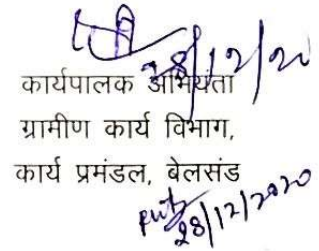 28/12/20
कार्यपालक अभियंता
ग्रामीण कार्य विभाग,
कार्य प्रमंडल, बेलसंड
28/12/2020